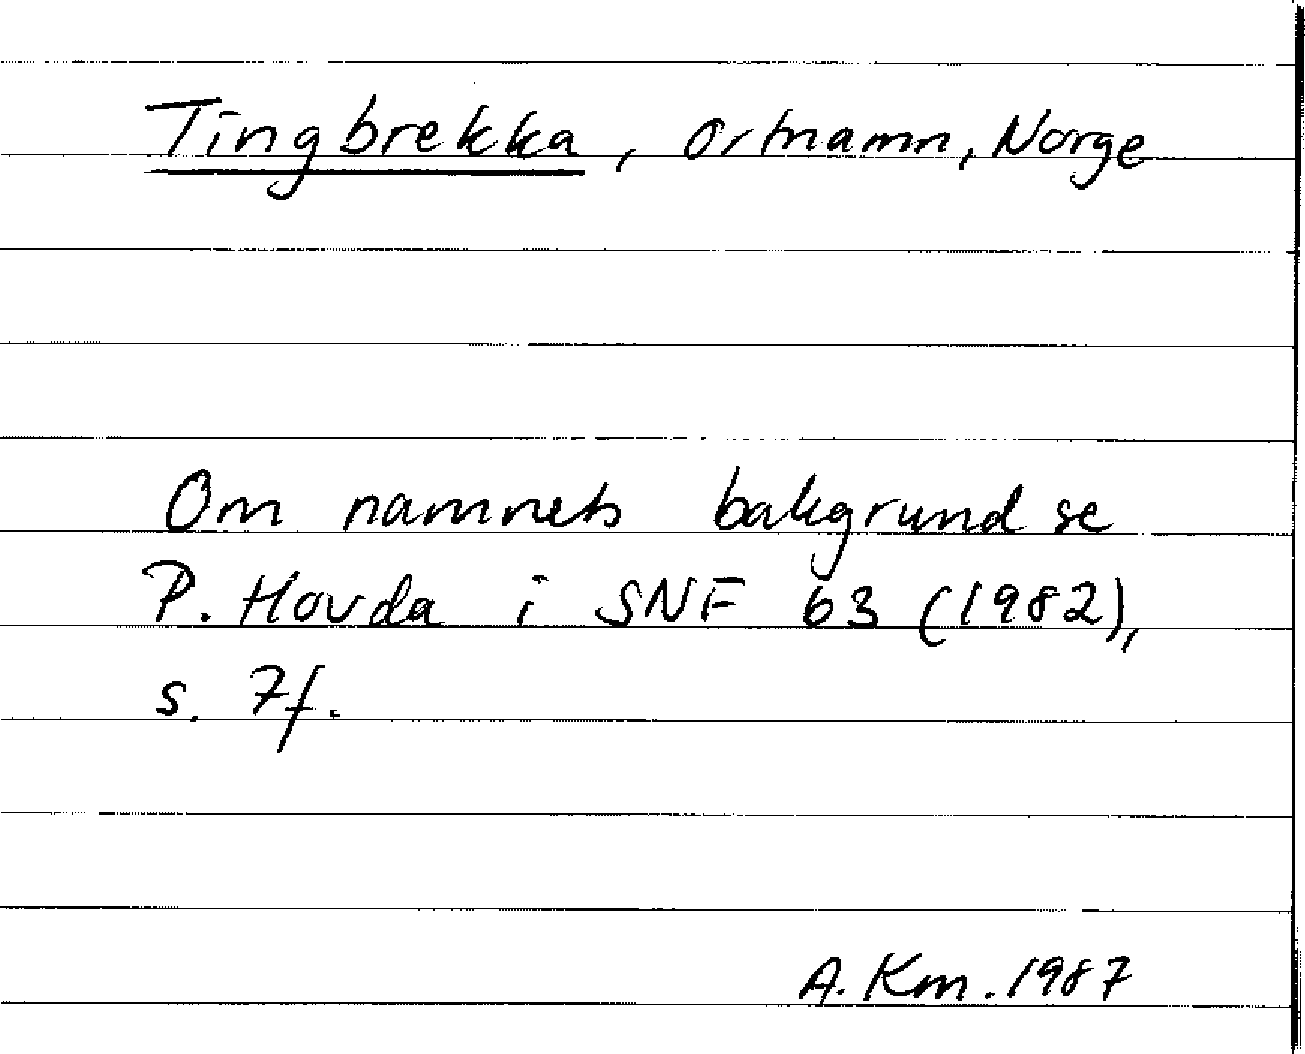 Tingbrekka, ortnamn, Norge
Om namnets bakgrund se
P. Hovda i SNF 63 (1982),
s. 7f.
A. Km. 1987